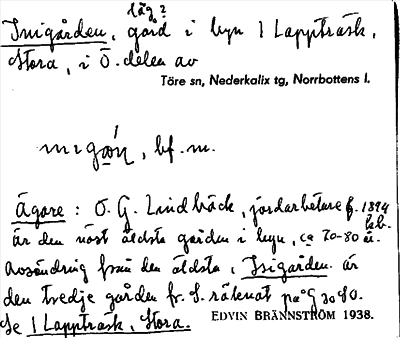 låg?
Inigården, gård i byn 1 Lappträsk,
Stora, i Ö. delen av
Töre sn, Nederkalix tg, Norrbottens l.
bf. m.
Ägare: O. G. Lindbäck, jordarbetare f. 1894
är den näst äldsta gården i byn, ca 70-80 år.
avsöndrig från den äldsta, Isigården. är
den tredje gården fr. S. räknat på G 30 80.
Se 1 Lappträsk, Stora.
EDVIN BRÄNNSTRÖM 1938.